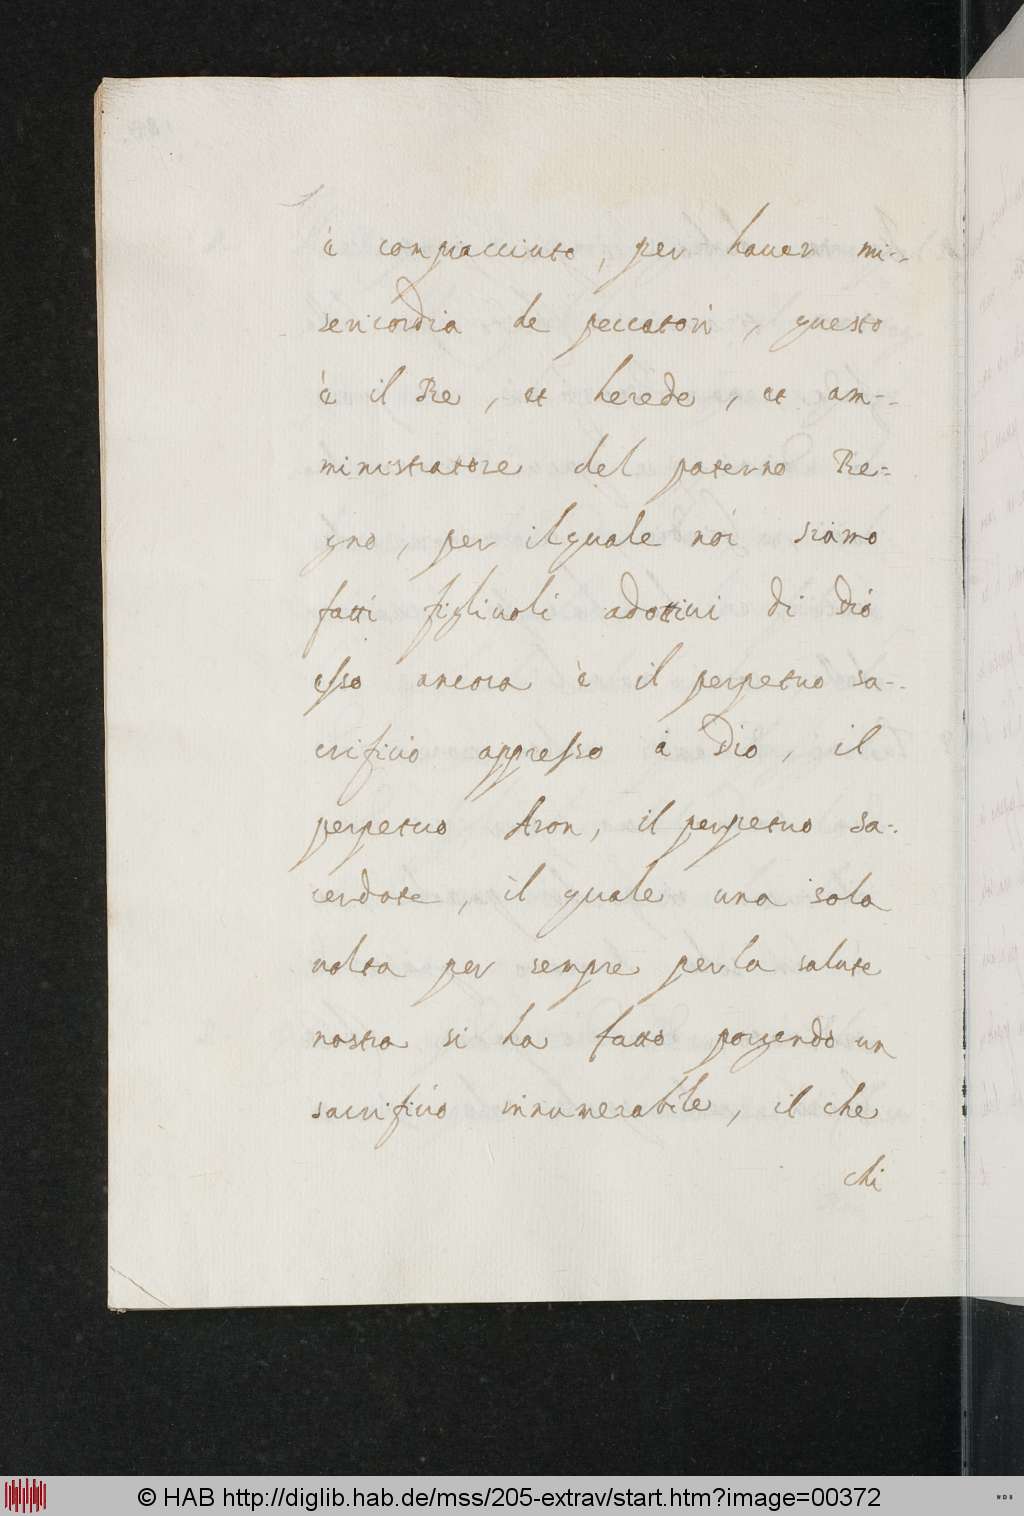 è compiacciuto, per hauer mi-
sericordia de peccatori, questo
è il Re, et herede, et am-
ministratore del paterno Re-
gno, per ilquale noi siamo
fatti figliuoli adottiui di Dio
esso ancora è il perpetuo sa-
crificio appresso à Dio, il
perpetuo Aron, il perpetuo sa-
cerdote, il quale una sola
uolta per sempre per la salute
nostra si ha fatto porgendo un
sacrificio innumerabile, il che
chi
© HAB http://diglib.hab.de/mss/205-extrav/start.htm?image=00372